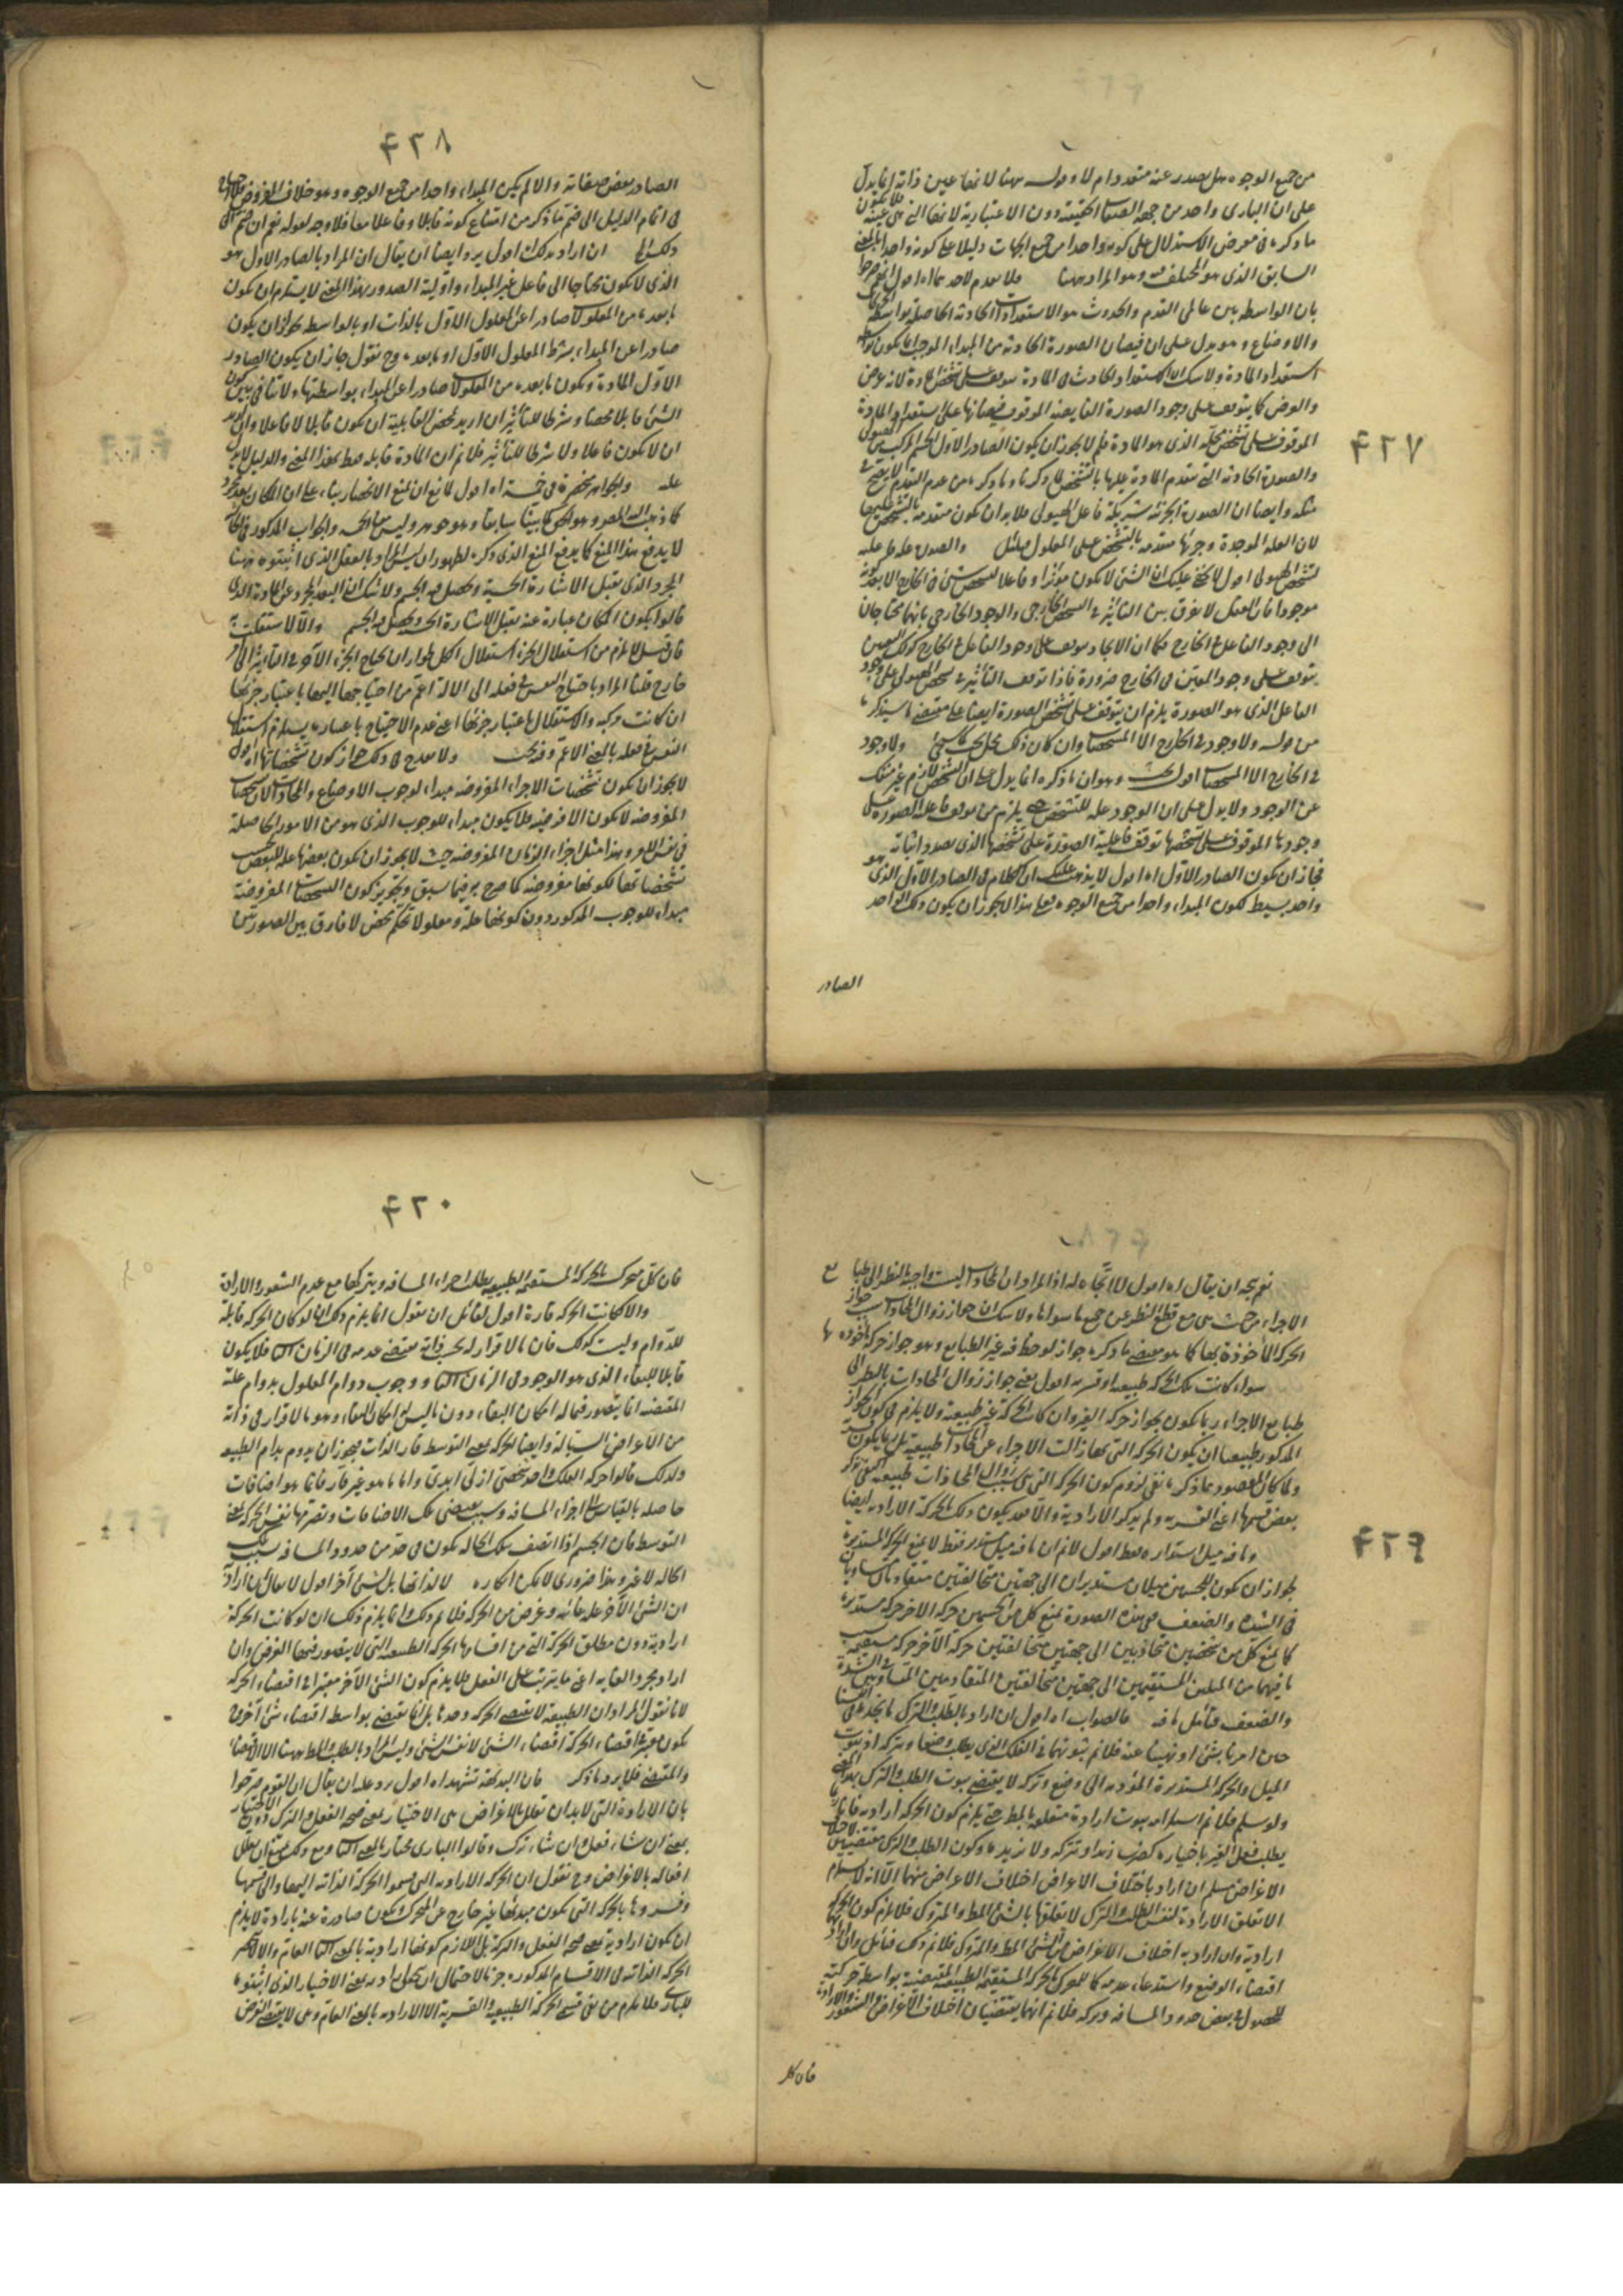 ٤٢٧
من جميع الوجوه هل يصدر عنه متعدد ام لا وقوله ههنا لانها عين ذاته انما يدل
على ان البارى واحد من جهة الصفات الحقيقية دون الاعتبارية لانها التى هى عينه فلا يكون
ما ذكره فى معرض الاستدلال على كونه واحدا من جميع الجهات دليلا على كونه واحدا بالمعنى
السابق الذى هو المختلف فيه وهو المراد ههنا فلا تقدم لاحدهما اه اقول انهم صرحوا
بان الواسطة بين عالمى القدم والحدوث هو الاستعدادات الحادثة الحاصلة بواسطة الحركات
والاوضاع وهو يدل على ان فيضان الصورة الحادثة من المبداء الموجب انما يكون بواسطة
استعداد المادة ولا شك ان الاستعداد الحادث فى المادة يتوقف على تشخص المادة لانه عرض
والعرض كما يتوقف على وجود الصورة الفايضة الموقوف فيضانها على استعداد المادة
الموقوف على تشخص محله الذى هو المادة فلم لا يجوز ان يكون الصادر الاول الجسم المركب من الهيولى
والصورة الحادثة التى تتقدم المادة عليها بالتشخص لما ذكرنا وما ذكره من عدم التقدم لا يصح فى
مثله وايضا ان الصورة الجزئية شريكة فاعل الهيولى فلا بد ان يكون متقدمة بالتشخص عليها
لان العلة الموجدة وجزئها متقدمه بالتشخص على المعلول فليتأمل والصورة علة
لتشخص الهيولى اقول لا يخفى عليك ان الشئ لا يكون مؤثرا وفاعلا لتشخص شئ فى الخارج الا بعد كونه
موجودا فان العقل لا يفرق بين التاثير فى التشخص الخارجى والوجود الخارجى بانهما محتاجان
الى وجود الفاعل فى الخارج فكما ان الايجاد يتوقف على وجود الفاعل فى الخارج كذلك التعيين
يتوقف على وجود المعين فى الخارج ضرورة فاذا توقف التأثير فى تشخص الهيولى على وجود
الفاعل الذى هو الصورة يلزم ان يتوقف على تشخص الصورة ايضا على مقتضى ما سيذكره
من قوله ولا وجود فى الخارج الا للمتشخصات وان كان ذلك محل بحث كما سيجئ ولا وجود
فى الخارج الا للمتشخصات اقول فيه بحث وهو ان ما ذكره انما يدل على ان التشخص لازم غير منفك
عن الوجود ولا يدل على ان الوجود علة للتشخص حتى يلزم من توقف فاعلية الصورة على
وجودها الموقوف على تشخصها توقف فاعلية الصورة على تشخصها الذى بصدد اثباته
فجاز ان يكون الصادر الاول اه اقول لا يذهب عليك ان الكلام فى الصادر الاول الذى هو
واحد بسيط لكون المبداء واحدا من جميع الوجوه فعلى هذا لا يجوز ان يكون ذلك الواحد
الصادر
٤٢٨
الصادر بعض صفاته والا لم يكن المبداء واحدا من جميع الوجوه وهو خلاف المفروض فلا حاجة
فى اتمام الدليل الى ضم ما ذكر من امتناع كونه قابلا وفاعلا معا فلا وجه لقوله نعم ان ضم الى
ذلك اه ان اراد بذلك اقول يرد ايضا ان يقال ان المراد بالصادر الاول هو
الذى لا يكون محتاجا الى فاعل غير المبداء واولية الصدور بهذا المعنى لا يستلزم ان يكون
ما بعده من المعلولات صادرا عن المعلول الاول بالذات او بالواسطة لجواز ان يكون
صادرا عن المبداء بشرط المعلول الاول او ما بعده وح نقول جاز ان يكون الصادر
الاول المادة ويكون ما بعده من المعلولات صادرا عن المبداء بواسطتها ولا تنافى بين كون
الشئ قابلا محضا وشرطا للتأثير ان اريد بمحض القابلية ان يكون قابلا لا فاعلا وان اريد
ان لا يكون فاعلا ولا شرطا للتأثير فلا نم ان المادة قابلة فقط بهذا المعنى والدليل لا يدل
عليه والجواهر منحصرة فى خمسة اه اقول لا نع ان نمنع الانحصار بناء على ان المكان بعد مجرد
كما ذهب اليه المصر وهو الحق كما بينا سابقا وهو جوهر وليس من الخمسة والجواب المذكور فى الحاشية
لا يدفع هذا المنع كما يدفع المنع الذى ذكره لظهور ان ليس المراد بالعقل الذى اثبتوه ههنا
المجرد الذى يقبل الاشارة الحسية ويحصل فيه الجسم ولا شك ان البعد المجرد عن المادة الذى
قالوا بكون المكان عبارة عنه يقبل الاشارة الحسية ويحصل فيه الجسم والا لاستغنت
فان قيل لا يلزم من استقلال الجزء استقلال الكل لجواز ان يحتاج الجزء الآخر فى التأثير الى
خارج قلنا المراد باحتياج النفس فى فعله الى الآلة اعم من احتياجها اليها باعتبار جزئها
ان كانت مركبة والاستقلال باعتبار جزئها اعنى عدم الاحتياج باعتباره يستلزم استقلال
النفس فى فعله بالمعنى الاعم وفيه بحث ولا يقدح فى ذلك جواز كون تشخصاتها اه اقول
لا يجوز ان يكون تشخصات الاجزاء المفروضة مبداء لوجوب الاوضاع والمحاذات لان تشخصات
المفروضة لا يكون الا فرضية فلا يكون مبداء للوجوب الذى هو من الامور الحاصلة
فى نفس الامر وهذا مثل اجزاء الزمان المفروضة حيث لا يجوز ان يكون بعضها علة للبعض بحسب
تشخصاتها لكونها مفروضة كما صرح به فيما سبق وتجويز كون التشخصات المفروضة
مبداء للوجوب المذكور دون كونها علة ومعلولا تحكم محض لا فارق بين الصورتين
٤٢٩
نم يتجه ان يقال اه اقول لا اتجاه له اذ المراد ان المحاذات ليست واجبة بالنظر الى طبايع
الاجزاء من حيث هى مع قطع النظر عن جميع ما سواها ولا شك ان جواز زوال المحاذات سبب جواز
الحركة المأخوذة بها كما هو مقتضى ما ذكره جواز لوحظ فيه غير الطبايع وهو جواز حركة مأخوذة بها
سواء كانت تلك الحركة طبيعية او قسرية اقول معنى جواز زوال المحاذات بالنظر الى
طبايع الاجزاء ربما يكون بجواز حركة الغير وان كانت الحركة غير طبيعية ولا يلزم من كون الجواز
المذكور طبيعيا ان يكون الحركة التى بها زالت الاجزاء عن المحاذات طبيعية بل ربما يكون قسرية
ولما كان المقصود مما ذكره نفى لزوم كون الحركة التى هى سبب زوال المحاذات طبيعية اكتفى بذكر
بعض قسيمها اعنى القسرية ولم يذكر الارادية والا فقد يكون ذلك الحركة الارادية ايضا
وما فيه ميل استدارة فقط اقول لا نم ان ما فيه ميل مستدير فقط لا يمنع الحركة المستديرة
لجواز ان يكون للجسمين ميلان مستديران الى جهتين متخالفتين متقاومان متساويان
فى الشدة والضعف ففى هذه الصورة يمنع كل من الجسمين حركة الآخر حركة مستديرة
كما يمنع كل من شخصين متجاذبين الى جهتين متخالفتين حركة الآخر حركة مستقيمة بسبب
ما فيهما من الميلين المستقيمين الى جهتين متخالفتين المتقاومين المتساويين فى الشدة
والضعف فتأمل ما فيه فالصواب اه اقول ان اراد بالطلب والترك ما نجد فى انفسنا
حال امرنا بشئ او نهينا عنه فلا نم ثبوتهما فى الفلك الذى يطلب وضعا ويتركه اذ ثبوت
الميل والحركة المستديرة المؤدية الى وضع وتركه لا يقتضى ثبوت الطلب والترك بهذا المعنى
ولو سلم فلا نم استلزامه ثبوت ارادة متعلقة بالمط حتى يلزم كون الحركة ارادية فانا
يطلب فعل الغير باختياره كضرب زيد او تركه ولا نريده وكون الطلب والترك مقتضيين لاختلاف
الاغراض مسلم ان اراد باختلاف الاغراض اختلاف الاغراض منهما الا انه لا يستلزم
الا تعلق الارادة لنفس الطلب والترك لا تعلقها بالشئ المط والمتروك فلا يلزم كون الحركة
ارادية وان اراد به اختلاف الاغراض من الشئ المط والمتروك فلا نم ذلك فتأمل وان اراد بهما
اقتضاء الوضع واستدعاء عدمه كما للمتحرك بالحركة المستقيمة الطبيعية المقتضية بواسطة حركته
للحصول فى بعض حدود المسافة وتركه فلا نم انهما يقتضيان اختلاف الاغراض والشعور والارادة
فان كل
٤٣٠
فان كل متحرك بالحركة المستقيمة الطبيعية يطلب اجزاء المسافة ويتركها مع عدم الشعور والارادة
والا لكانت الحركة قارة اقول لقائل ان يقول انما يلزم ذلك ان لو كان الحركة قابلة
للدوام وليست كذلك فان ما لا قرار له بحسب ذاته مقتضى عدمه فى الزمان الثانى فلا يكون
قابلا للبقاء الذى هو الوجود فى الزمان الثانى ووجوب دوام المعلول بدوام علته
المقتضية انما يتصور فيما له امكان البقاء دون ما ليس له امكان البقاء وهو ما لا قرار فى ذاته
من الاعراض السيالة وايضا الحركة بمعنى التوسط قار الذات فيجوز ان يدوم بدوام الطبيعة
ولذلك قالوا حركة الفلك واحد شخصى ازلى ابدى واما ما هو غير قار فانما هو اضافات
حاصلة بالقياس الى اجزاء المسافة وسبب مقتضى تلك الاضافات وتصرمها نفس الحركة بمعنى
التوسط فان الجسم اذا اتصف بتلك الحالة يكون فى حد من حدود المسافة بسبب تلك
الحالة لا غير وهذا ضرورى لا يمكن انكاره لا لذاتها بل لشئ آخر اقول لا يقال ان اراد
ان الشئ الآخر علة غائية وغرض من الحركة فلا نم ذلك وانما يلزم ذلك ان لو كانت الحركة
ارادية دون مطلق الحركة التى من اقسامها الحركة الطبيعية التى لا يتصور فيها الغرض وان
اراد مجرد الغاية اعنى ما يترتب على الفعل فلا يلزم كون الشئ الآخر معتبرا فى اقتضاء الحركة
لانا نقول المراد ان الطبيعة لا يقتضى الحركة وحدها بل انما يقتضى بواسطة اقتضاء شئ آخر
يكون معتبرا فى اقتضاء الحركة اقتضاء الشئ لا نفس الشئ وليس المراد بالطلب والمط ههنا الا الاقتضاء
والمقتضى فلا يرد ما ذكر فان البديهة تشهد اه اقول يرد عليه ان يقال ان القوم صرحوا
بان الارادة التى لا بد ان تعلل بالاغراض هى الاختيار بمعنى صحة الفعل والترك دون الاختيار
بمعنى ان شاء فعل وان شاء ترك وقالوا البارى مختار بالمعنى الثانى ومع ذلك يمتنع ان يعلل
افعاله بالاغراض وح نقول ان الحركة الارادية التى قسموا الحركة الذاتية اليها والى قسيمها
وفسروها بالحركة التى يكون مبدئها غير خارج عن المتحرك ويكون صادرة عنه بارادة لا يلزم
ان يكون ارادية بمعنى صحة الفعل والترك بل اللازم كونها ارادية بالمعنى الثانى العام والا لم ينحصر
الحركة الذاتية فى الاقسام المذكورة جزما لاحتمال ان يكون ارادية بمعنى الاختيار الذى اثبتوه
للبارى فلا يلزم من نفى قسمى الحركة الطبيعية والقسرية الا الارادية بالمعنى العام وهى لا يقتضى الغرض